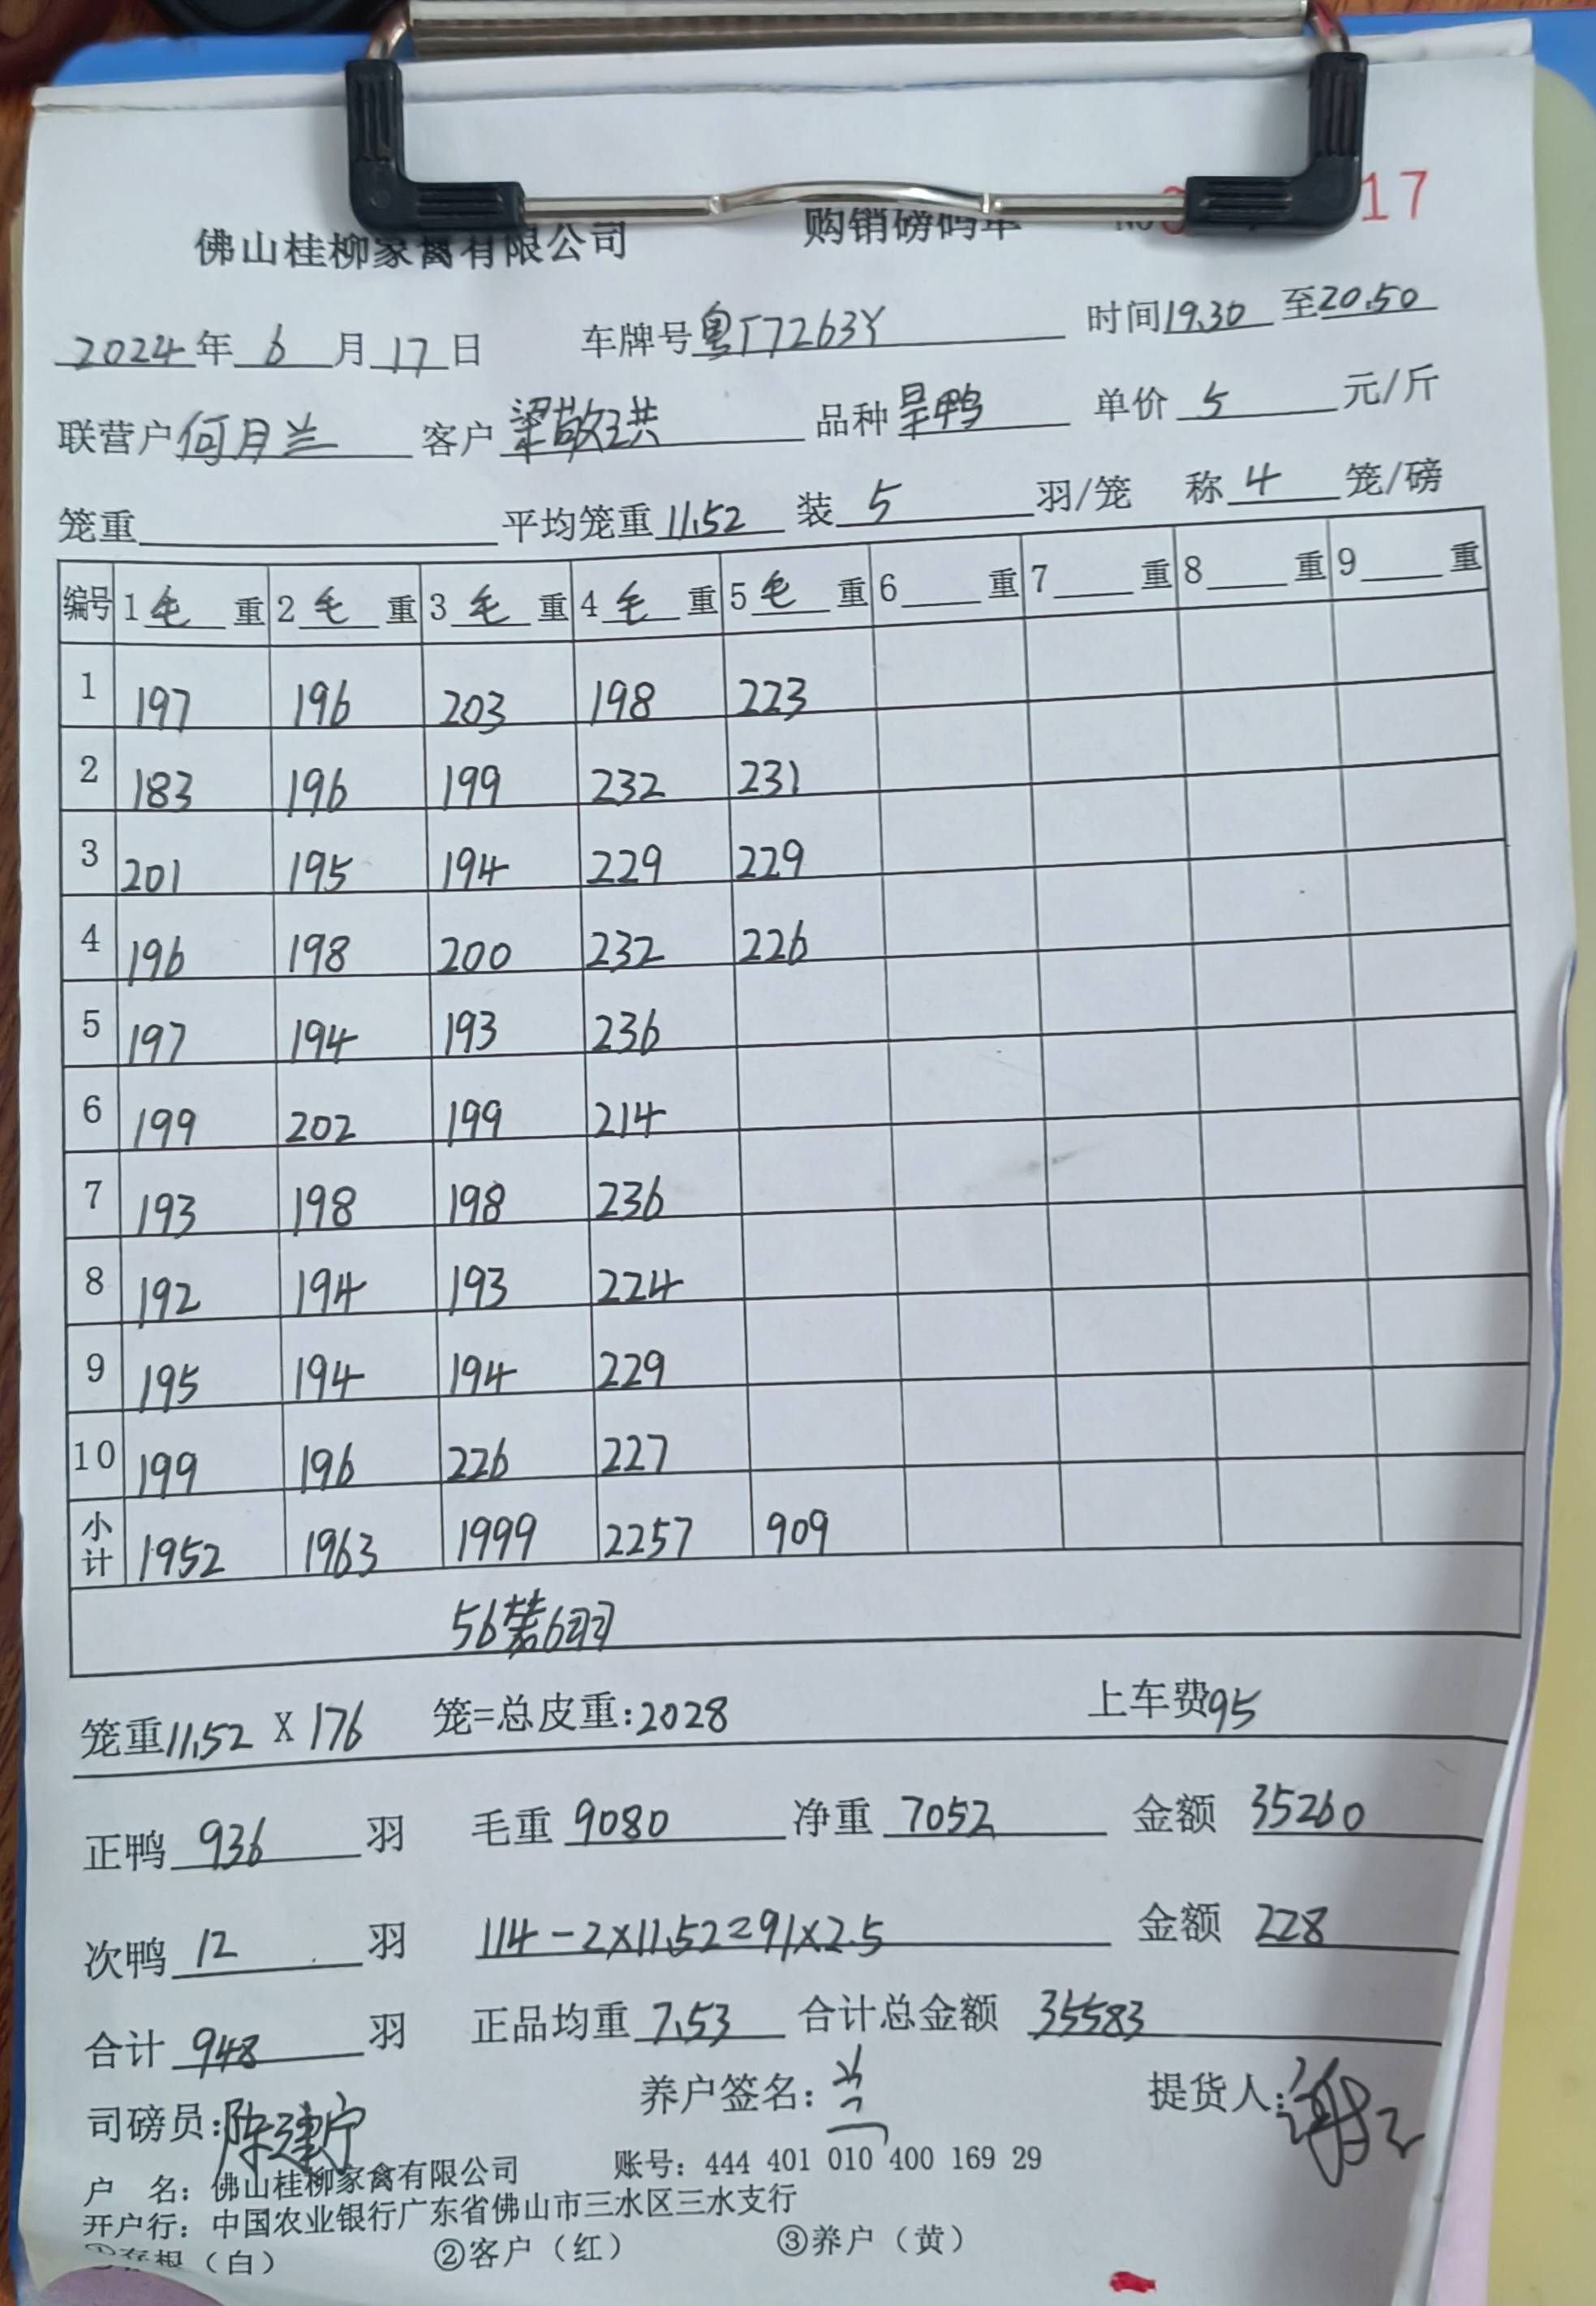 佛山桂柳家禽有限公司 购销磅码单 17
2024年6月17日 车牌号粤T7263Y 时间19.30至20.50
联营户何月兰 客户梁敬珙 品种旱鸭 单价5元/斤
笼重 平均笼重11.52 装5羽/笼 称4笼/磅
编号 1毛重 2毛重 3毛重 4毛重 5毛重 6重 7重 8重 9重
1 197 196 203 198 223
2 183 196 199 232 231
3 201 195 194 229 229
4 196 198 200 232 226
5 197 194 193 236
6 199 202 199 214
7 193 198 198 236
8 192 194 193 224
9 195 194 194 229
10 199 196 226 227
小计 1952 1963 1999 2257 909
56装6羽
笼重11.52 X 176 笼=总皮重:2028 上车费95
正鸭936羽 毛重9080 净重7052 金额35260
次鸭12羽 114-2×11.52=91×2.5 金额228
合计948羽 正品均重7.53 合计总金额35583
司磅员:陈建宁 养户签名:兰 提货人:
户 名: 佛山桂柳家禽有限公司 账号: 444 401 010 400 169 29
开户行: 中国农业银行广东省佛山市三水区三水支行
①存根（白） ②客户（红） ③养户（黄）